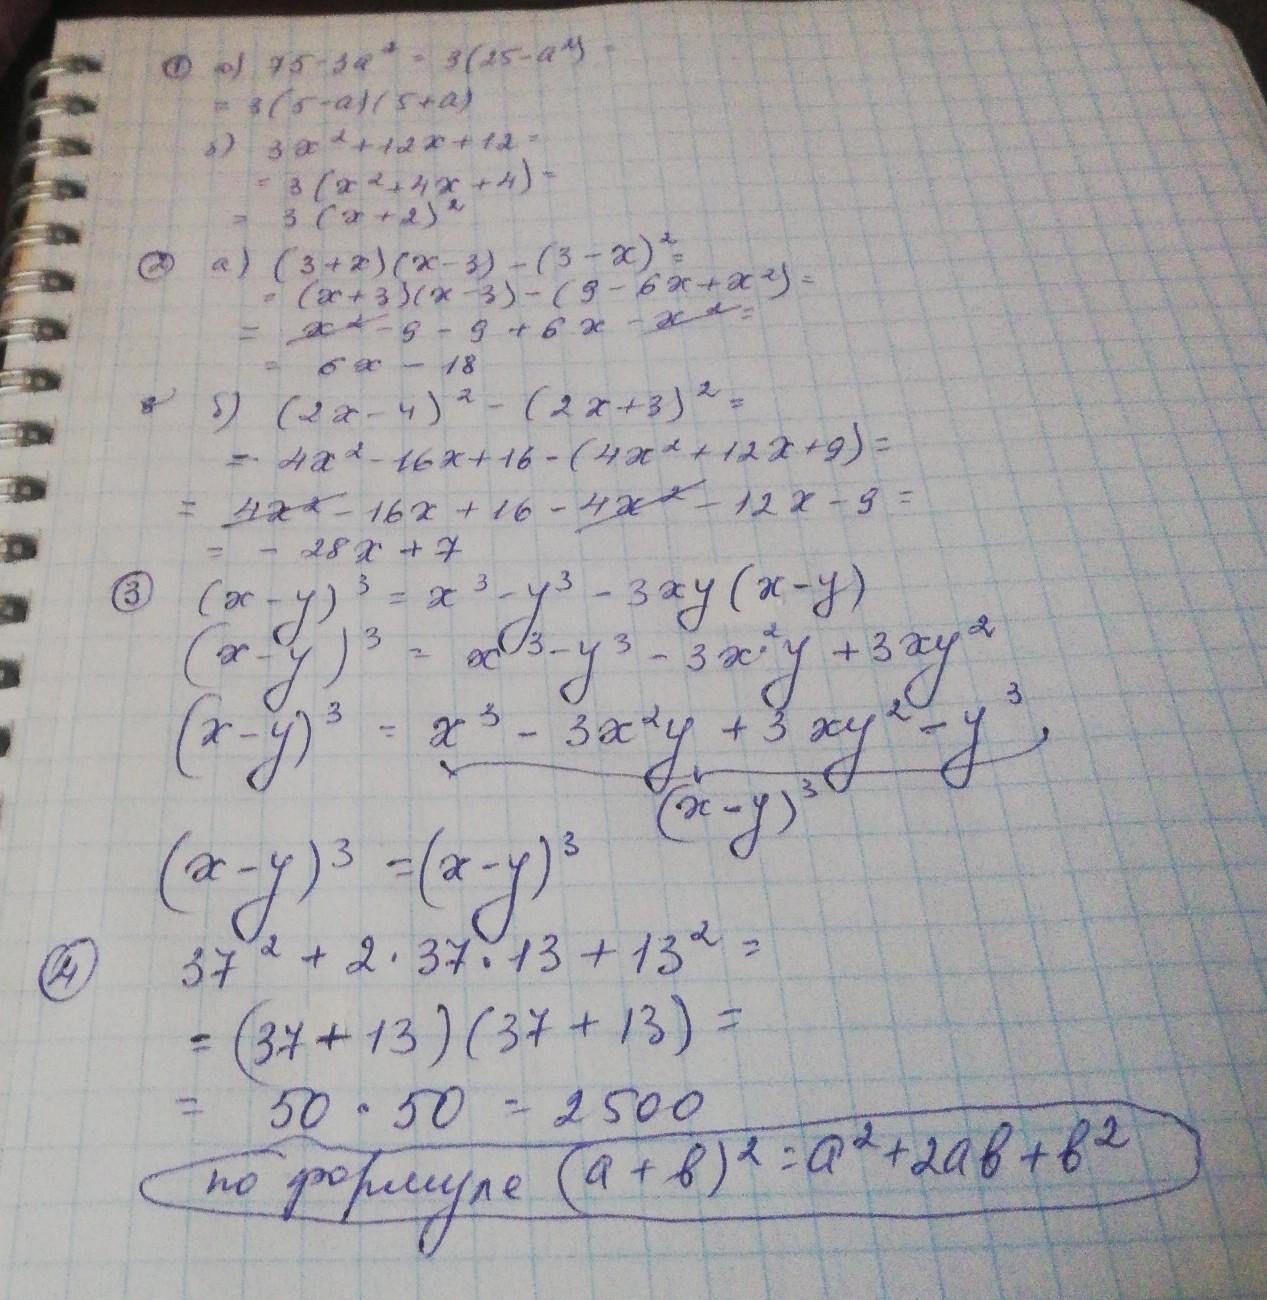 ① а) 75-3a² = 3(25-a²) =
= 3(5-a)(5+a)
б) 3x²+12x+12=
= 3(x²+4x+4)=
= 3(x+2)²
② а) (3+x)(x-3)-(3-x)²=
= (x+3)(x-3)-(9-6x+x²)=
= x²-9-9+6x-x²=
= 6x-18
б) (2x-4)²-(2x+3)²=
= 4x²-16x+16-(4x²+12x+9)=
= 4x²-16x+16-4x²-12x-9=
= -28x+7
③ (x-y)³=x³-y³-3xy(x-y)
(x-y)³ = x³-y³-3x²y+3xy²
(x-y)³ = x³-3x²y+3xy²-y³
(x-y)³
(x-y)³=(x-y)³
④ 37²+2·37·13+13²=
= (37+13)(37+13)=
= 50·50=2500
по формуле (a+b)²=a²+2ab+b²